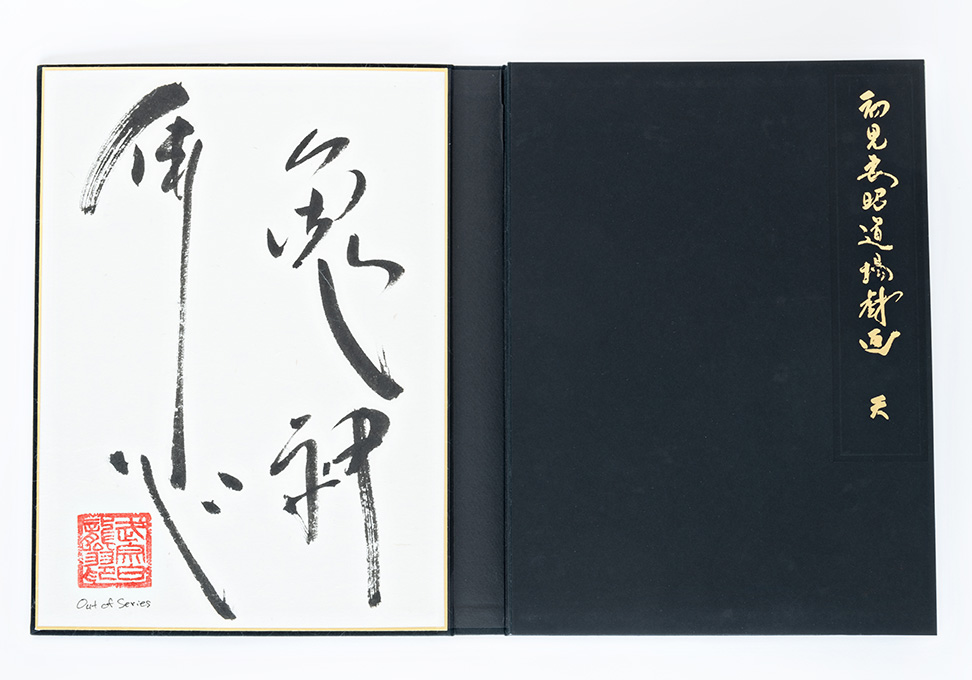 鬼神
佛心
Out of Series
初見良昭道場戯画 天